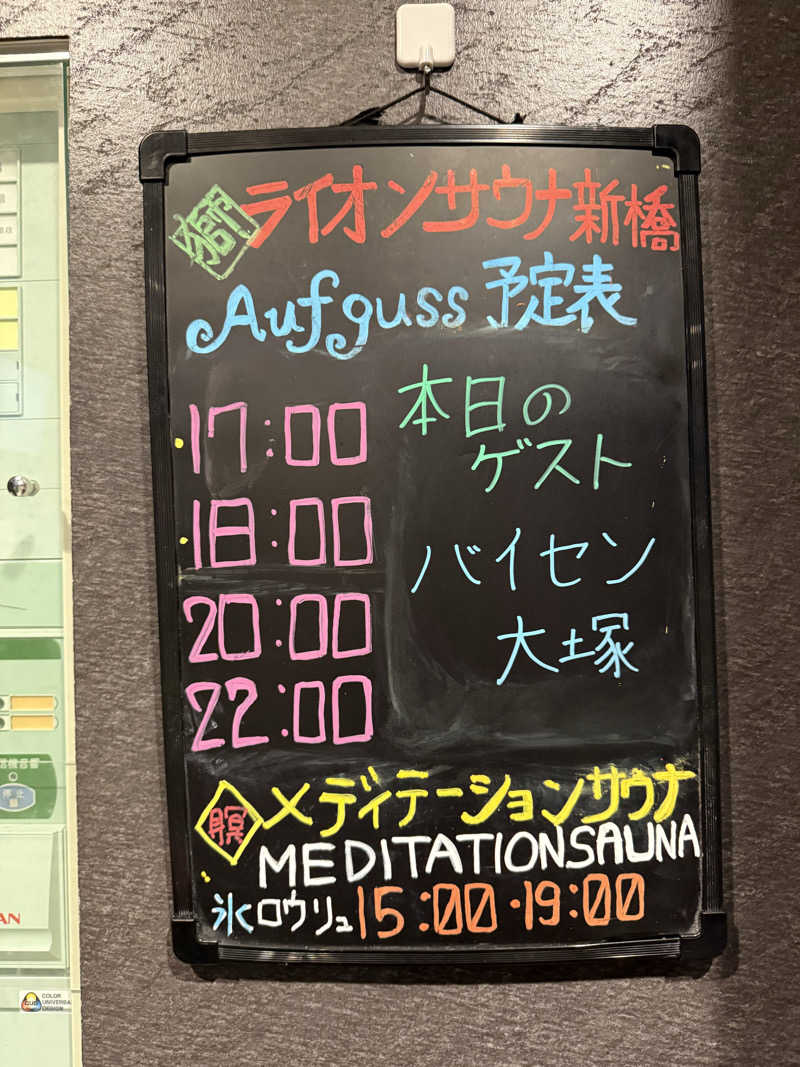 獅 ライオンサウナ新橋
Aufguss 予定表
17:00
18:00
20:00
22:00
本日の
ゲスト
バイセン
大塚
瞑 メディテーションサウナ
MEDITATIONSAUNA
氷ロウリュ 15:00・19:00
停止
AN
COLOR
UNIVERSAL
DESIGN